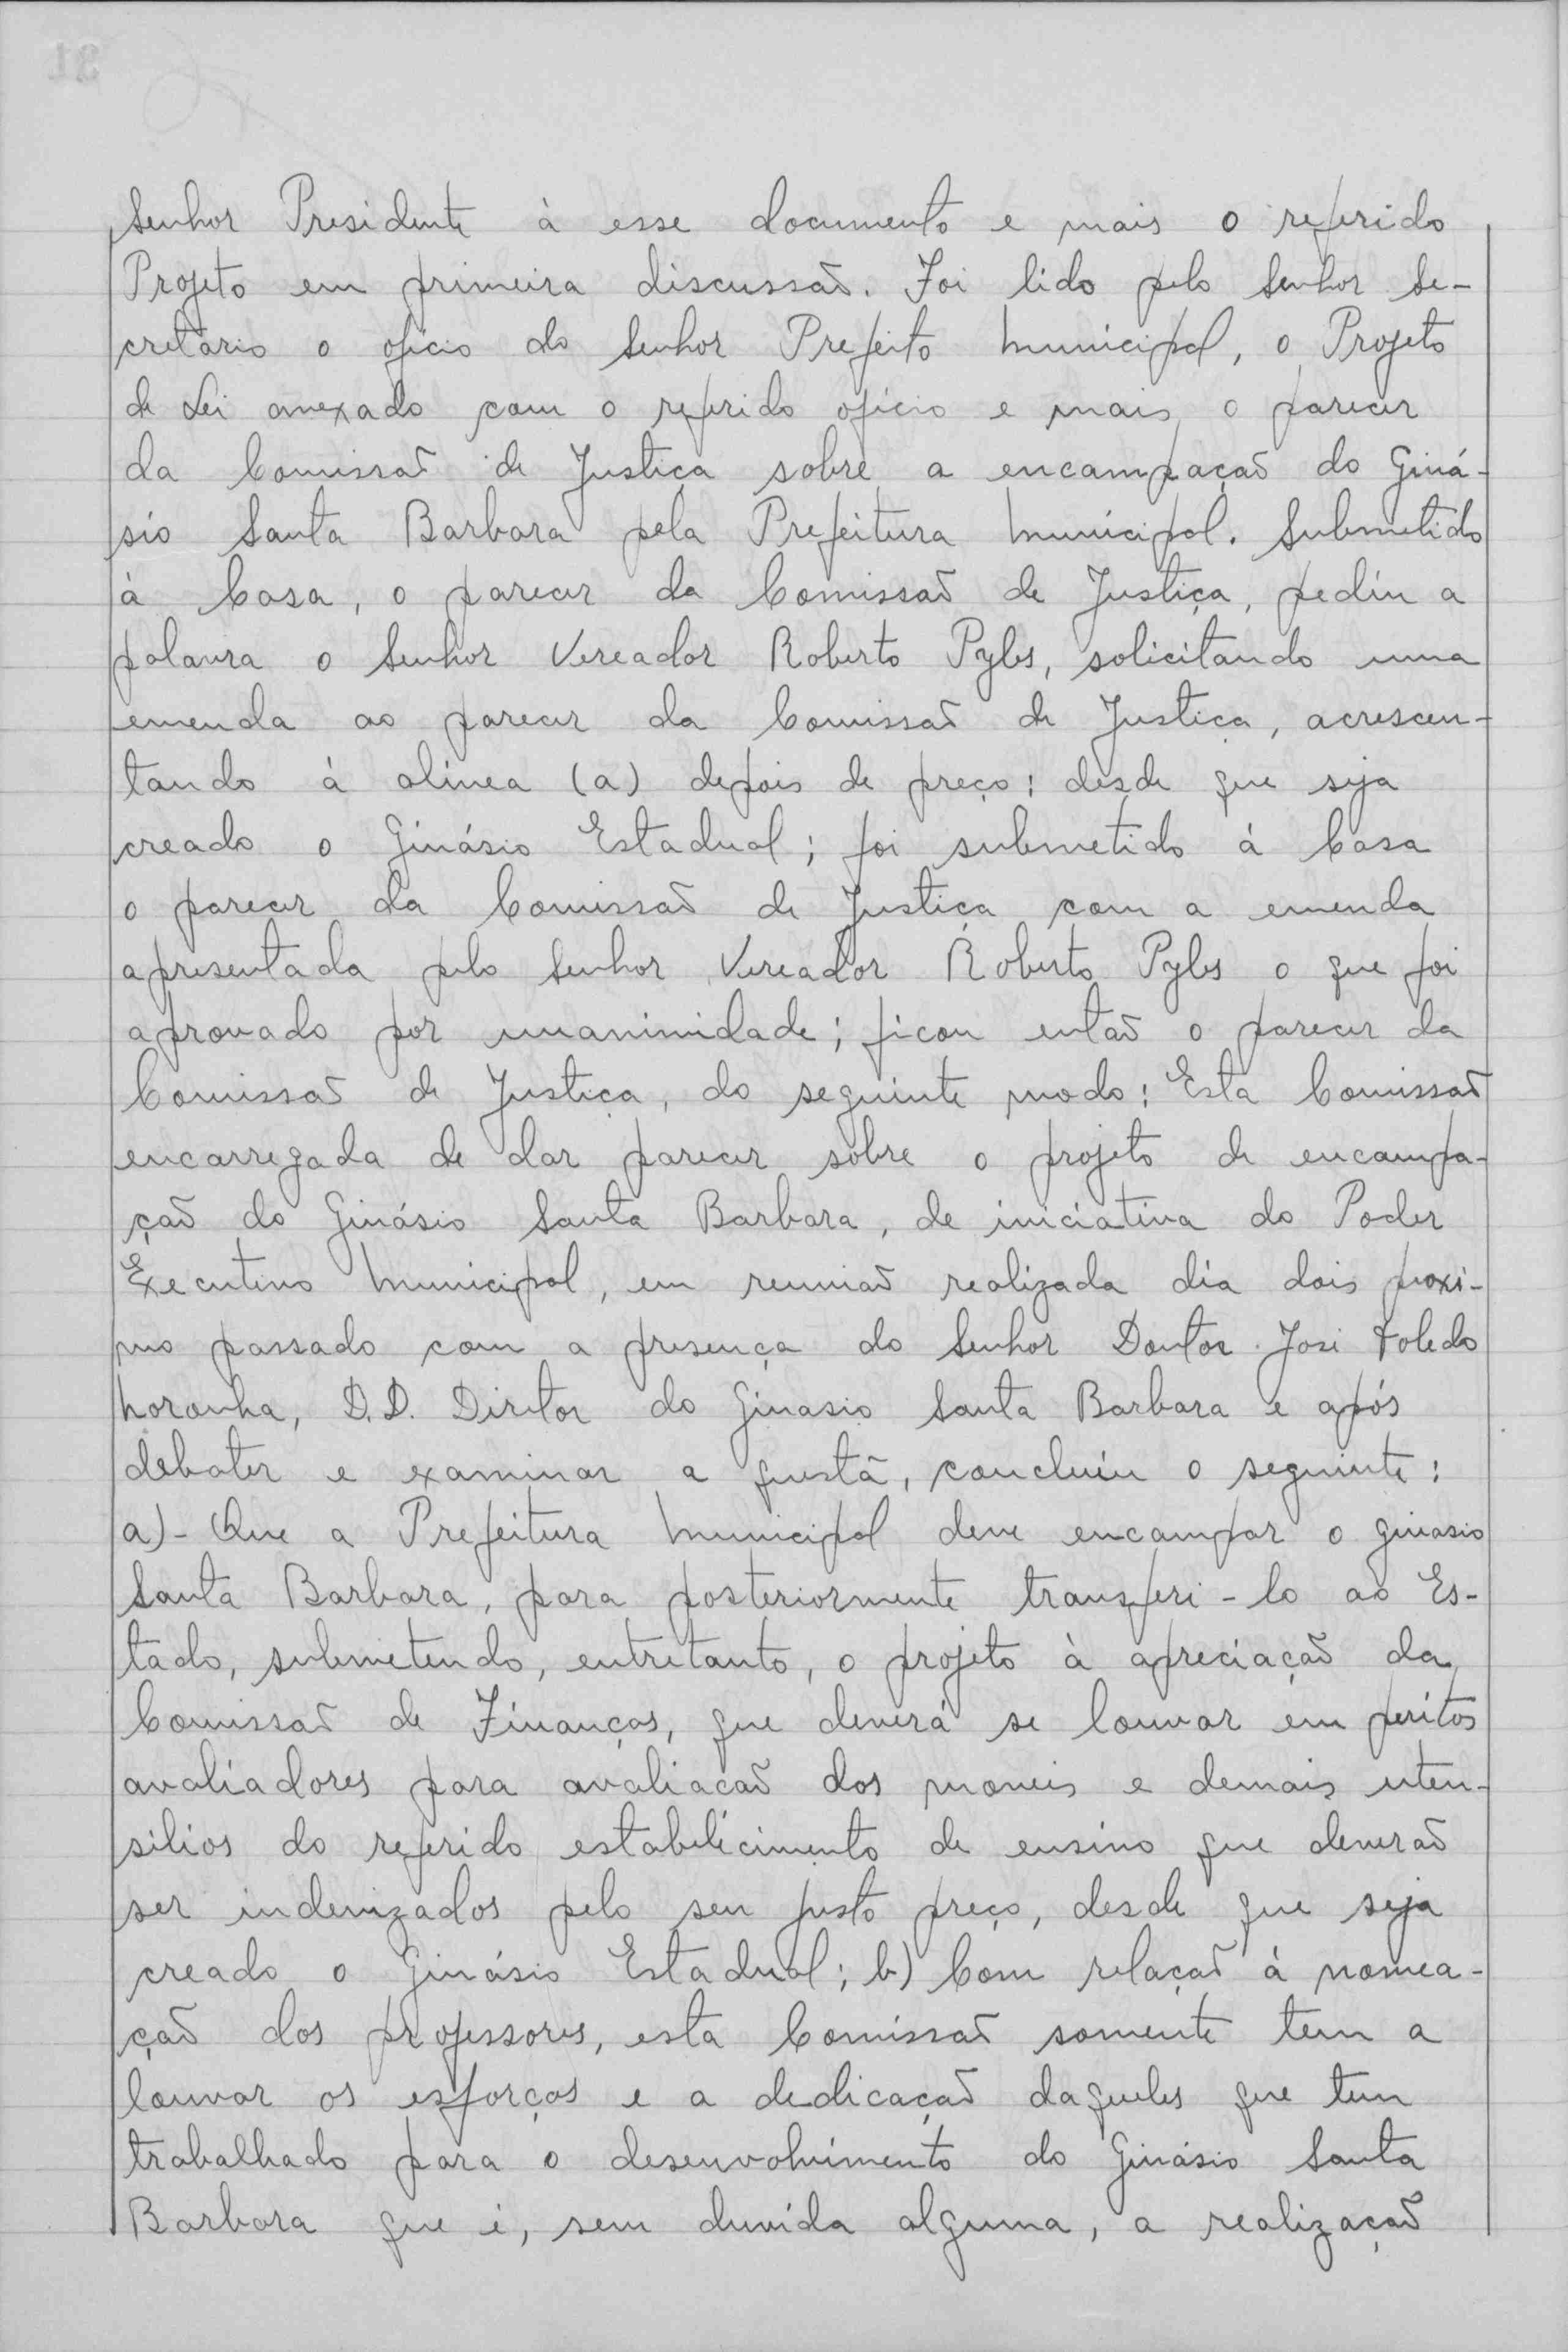 Senhor Presidente à esse documento e mais o referido
Projeto em primeira discussão. Foi lido pelo Senhor Se-
cretário o oficio do Senhor Prefeito Municipal, o Projeto
de Lei anexado com o referido oficio e mais o parecer
da Comissão de Justiça sobre a encampação do Giná-
sio Santa Barbara pela Prefeitura Municipal. Submetido
à Casa, o parecer da Comissão de Justiça, pediu a
palavra o Senhor Vereador Roberto Pyles, solicitando uma
emenda ao parecer da Comissão de Justiça, acrescen-
tando à alinea (a) depois de preço: desde que seja
creado o Ginásio Estadual; foi submetido à Casa
o parecer da Comissão de Justiça com a emenda
apresentada pelo Senhor Vereador Roberto Pyles o que foi
aprovado por unanimidade; ficou então o parecer da
Comissão de Justiça, do seguinte modo: Esta Comissão
encarregada de dar parecer sobre o projeto de encampa-
ção do Ginásio Santa Barbara, de iniciativa do Poder
Executivo Municipal, em reunião realizada dia dois proxi-
mo passado com a presença do Senhor Doutor José Toledo
Noronha, D.D. Diretor do Ginasio Santa Barbara e após
debater e examinar a questã, concluiu o seguinte:
a)- Que a Prefeitura Municipal deve encampar o ginasio
Santa Barbara, para posteriormente transferi-lo ao Es-
tado, submetendo, entretanto, o projeto à apreciação da
Comissão de Finanças, que deverá se louvar em peritos
avaliadores para avaliacão dos moveis e demais uten-
silios do referido estabelecimento de ensino que deverão
ser indenizados pelo seu justo preço, desde que seja
creado o Ginásio Estadual; b) Com relação à nomea-
ção dos professores, esta Comissão somente tem a
louvar os esforços e a dedicação daqueles que tem
trabalhado para o desenvolvimento do Ginásio Santa
Barbara que é, sem duvida alguma, a realização